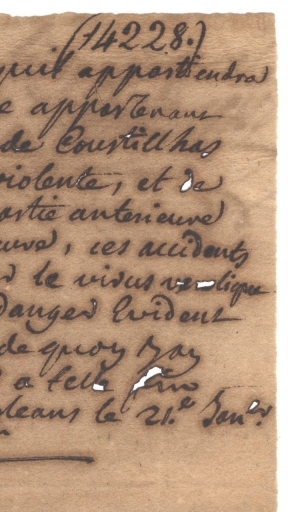 (14228.)
qu'il appartiendra
e appartenant
de Courtillhas
violente, et de
partie anterieure
euve, ces accidents
le virus verolique
Danger Evident
de quoy Jay
a telle fin
leans le 21.e Janer.